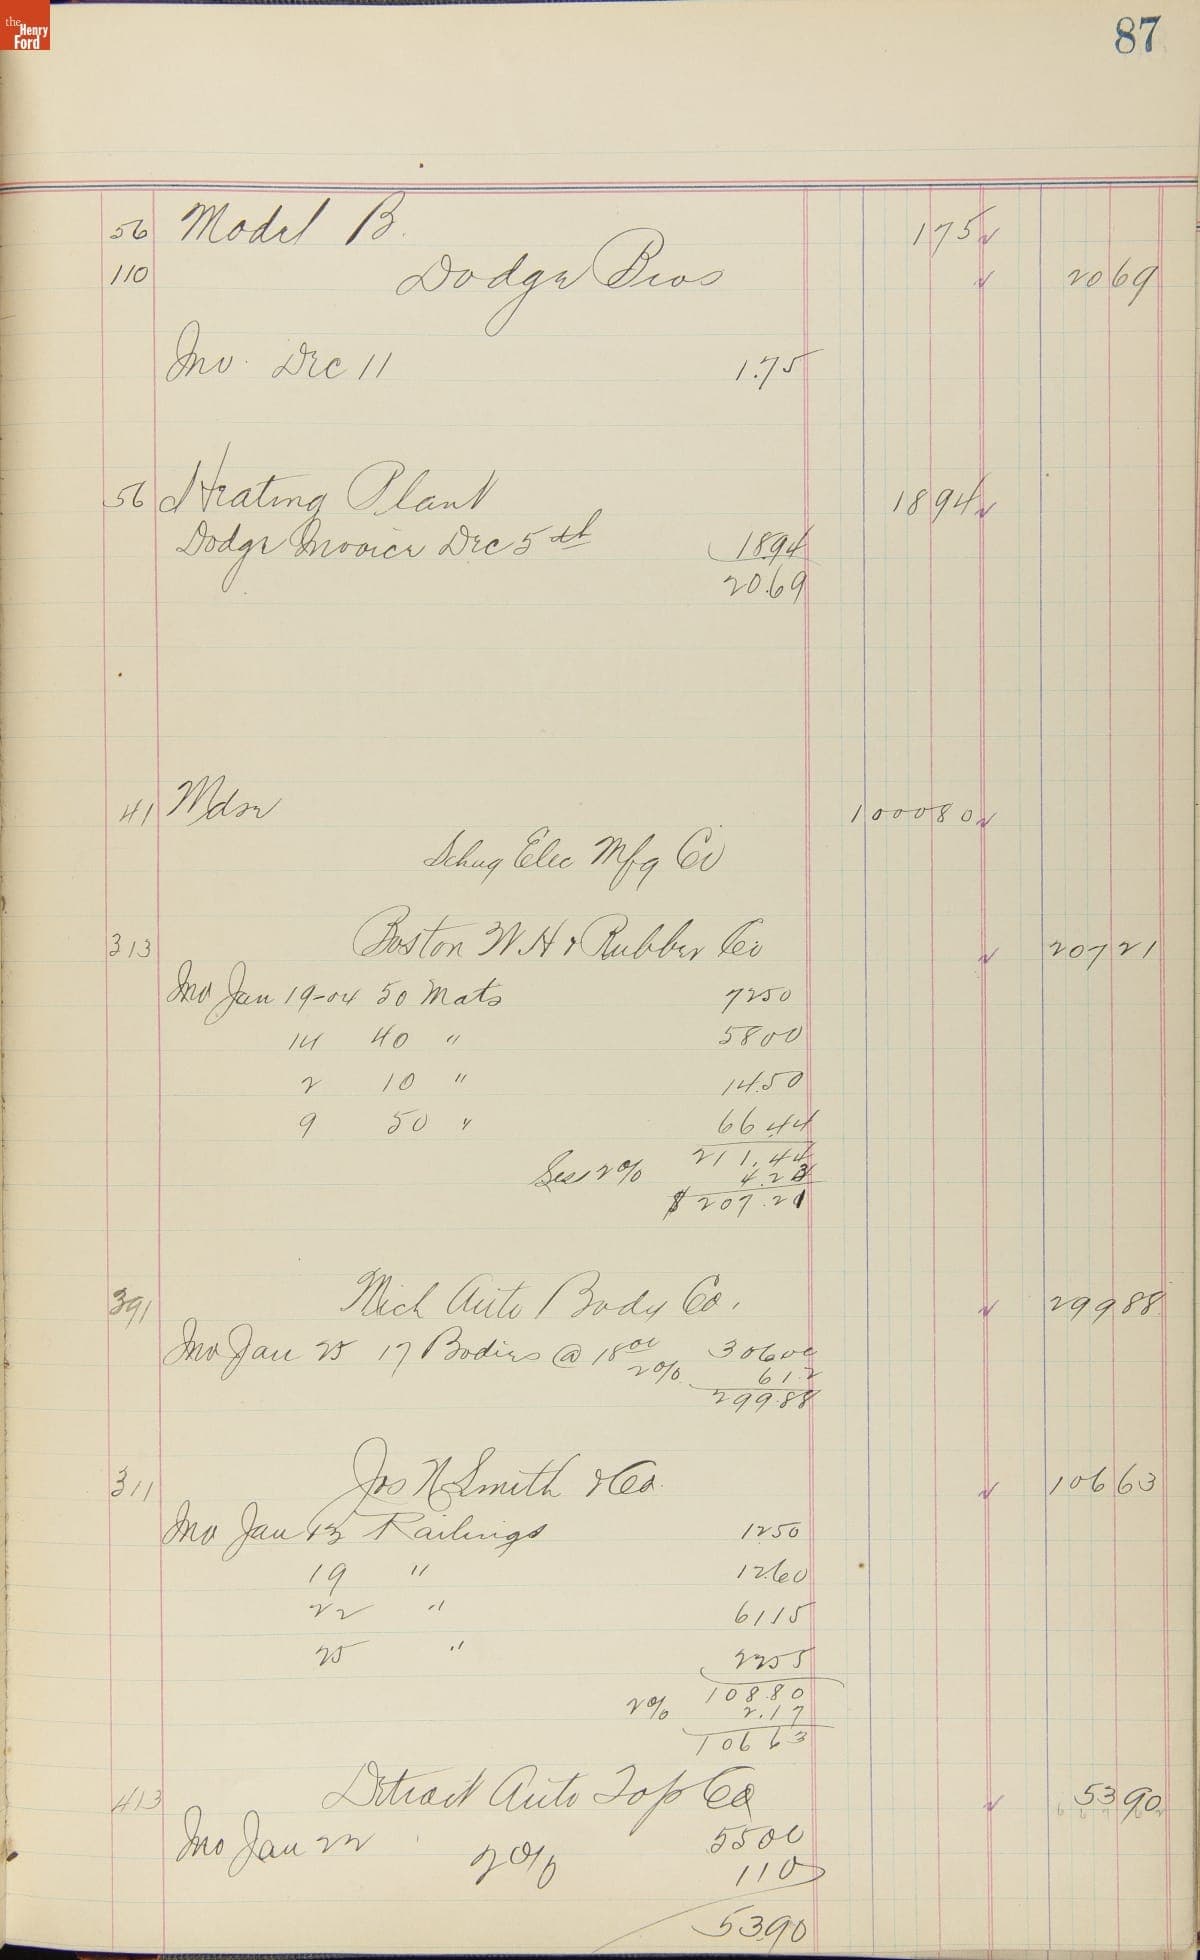 the Henry Ford
87
56 Model B. 175
110 Dodge Bros 2069
Inv. Dec 11 1.75
56 Heating Plant 1894
Dodge Invoice Dec 5th 18.94
20.69
41 Mdse 100080
Schug Elec Mfg Co
313 Boston W. H & Rubber Co 20721
Inv Jan 19-04 50 Mats 7250
14 40 " 5800
2 10 " 14.50
9 50 " 66.44
211.44
Less 2% 4.23
$207.21
391 Mich Auto Body Co. 29988
Inv Jan 25 17 Bodies @ 18 00 306 00
2% 6 12
299.88
311 Jos N Smith & Co. 10663
Inv Jan 13 Railings 1250
19 " 12.60
22 " 6115
25 " 2255
108.80
2% 2.17
106 63
413 Detroit Auto Top Co 5390
Inv Jan 22 5500
2% 110
53.90